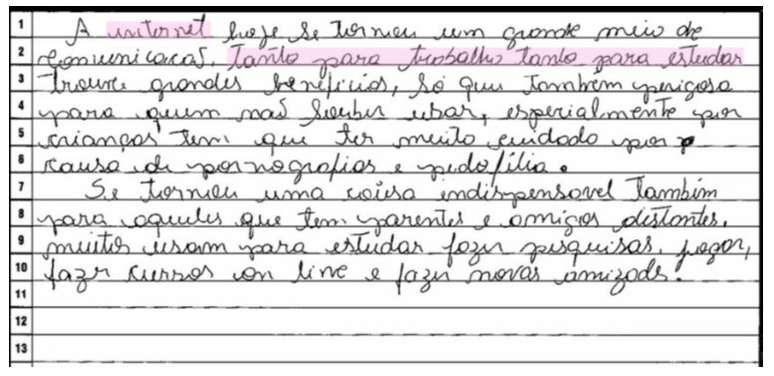 1 A internet hoje se tornou um grande meio de
2 comunicacaõ. Tanto para trabalho tanto para estudar
3 trouxe grandes beneficios, só que também perigosa
4 para quem naõ souber usar, especialmente por
5 crianças tem que ter muito cuidado por
6 causa de pornografias e pedofília.
7 Se tornou uma coisa indispensavel também
8 para aqueles que tem parentes e amigos distantes,
9 muitos usam para estudar fazer pesquisas, jogar,
10 fazer cursos on line e fazer novas amizads.
11
12
13